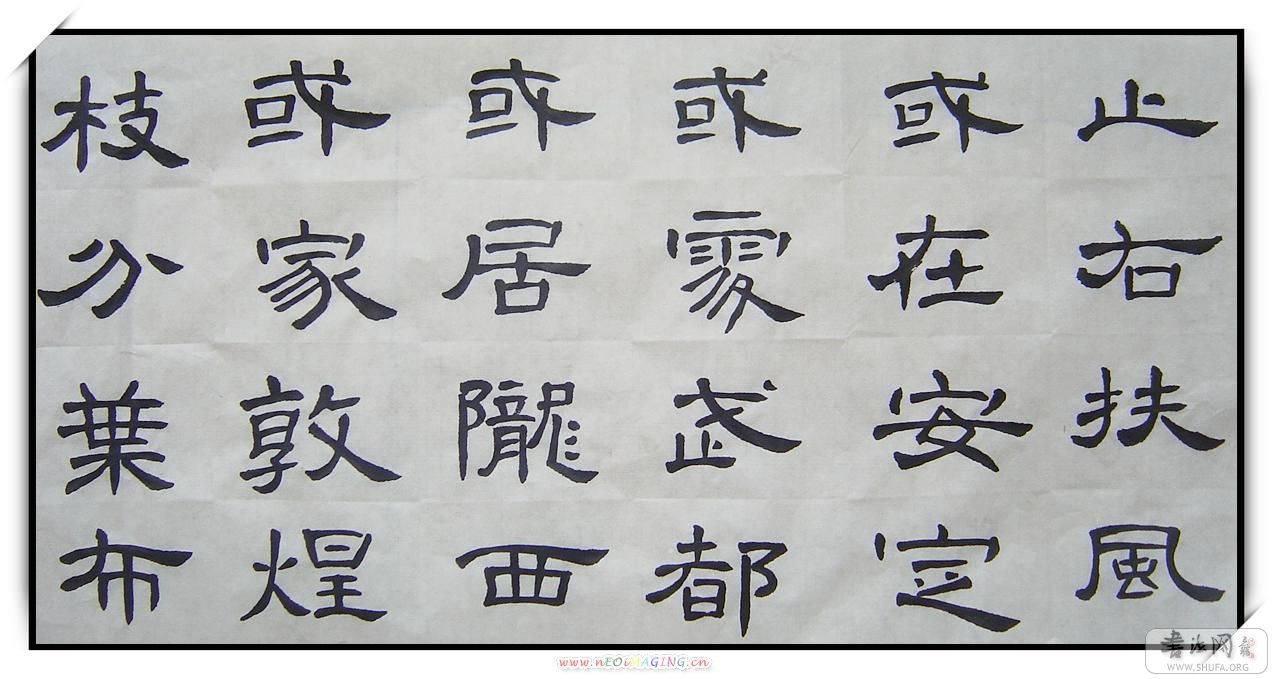 止右扶風
或在安定
或處武都
或居隴西
或家敦煌
枝分葉布
书法网
WWW.SHUFA.ORG
www.nEOiMAGiNG.cn